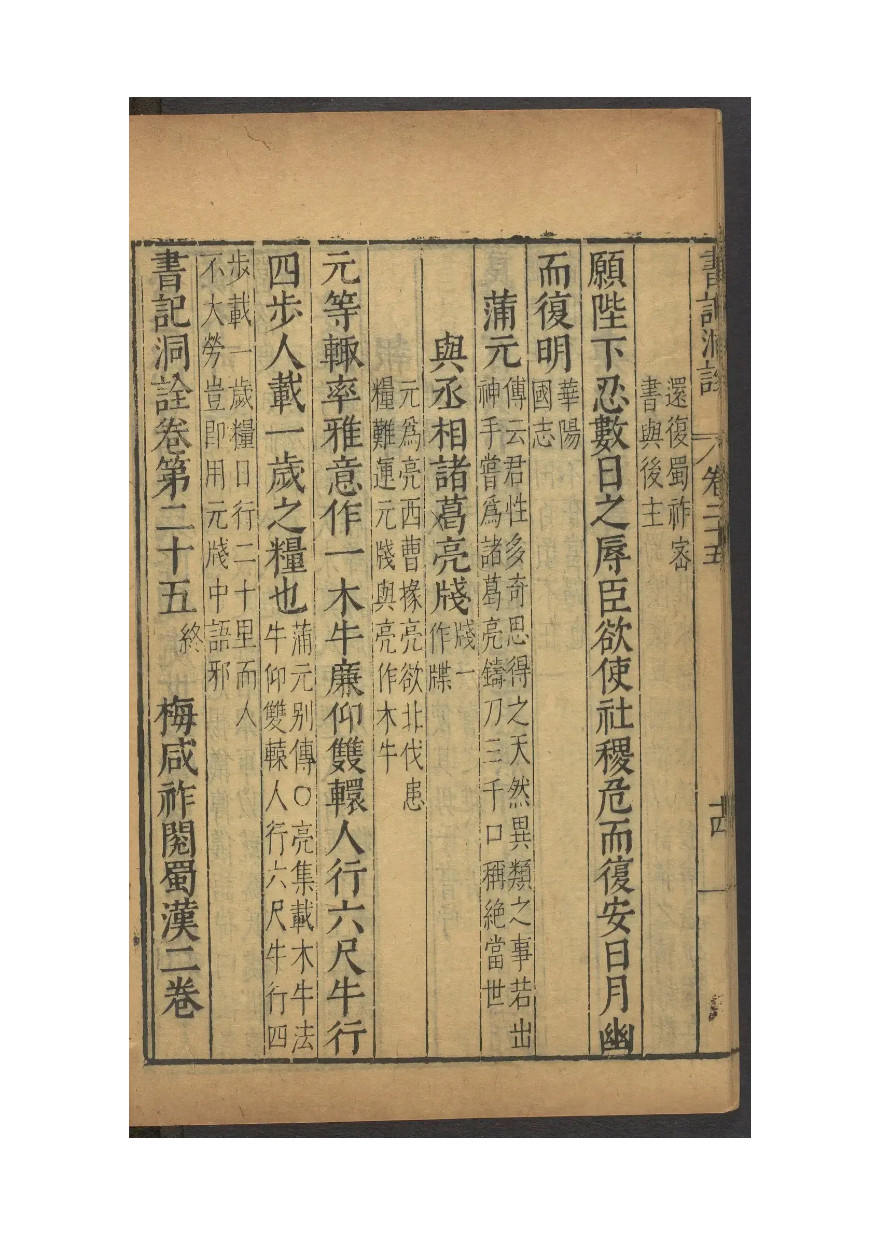 書記洞詮 卷二十五 十四
還復蜀祚密
書與後主
願陛下忍數日之辱臣欲使社稷危而復安日月幽
而復明
華陽
國志
蒲元
傳云君性多奇思得之天然異類之事若出
神手嘗爲諸葛亮鑄刀三千口稱絶當世
與丞相諸葛亮牋
牋一
作牒
元爲亮西曹掾亮欲北伐患
糧難運元牋與亮作木牛
元等輙率雅意作一木牛廉仰雙轅人行六尺牛行
四步人載一歲之糧也
蒲元别傳○亮集載木牛法
牛仰雙轅人行六尺牛行四
步載一歲糧日行二十里而人
不大勞豈即用元牋中語邪
書記洞詮卷第二十五
終
梅咸祚閱蜀漢二卷